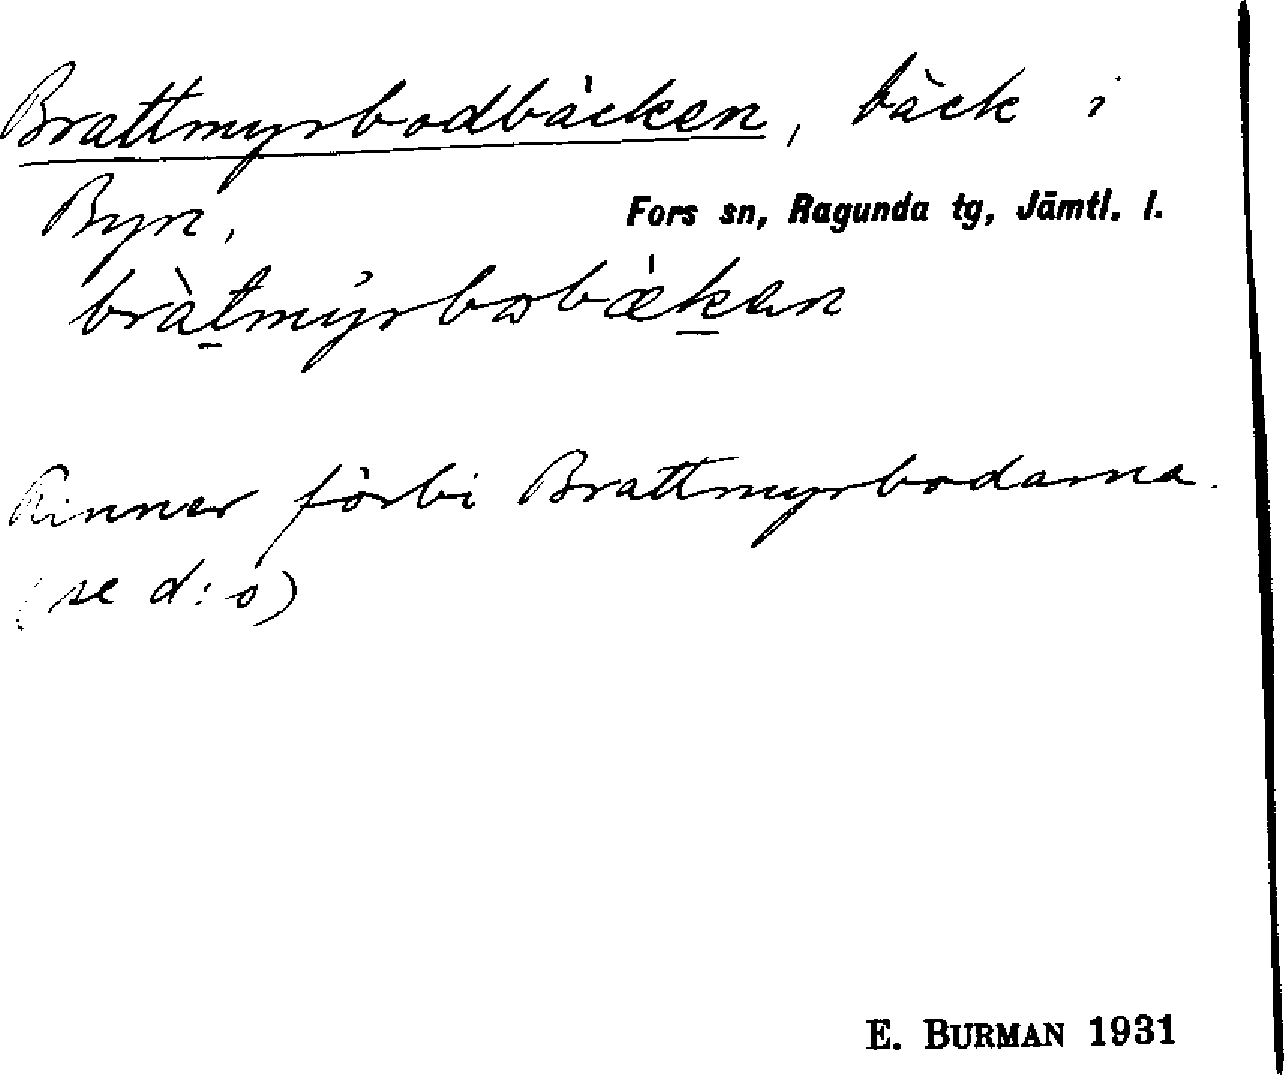 Brattmyrbodbäcken, bäck i
Byn, Fors sn, Ragunda tg, Jämtl. l.
Rinner förbi Brattmyrbodarna.
(se d:o)
E. BURMAN 1931